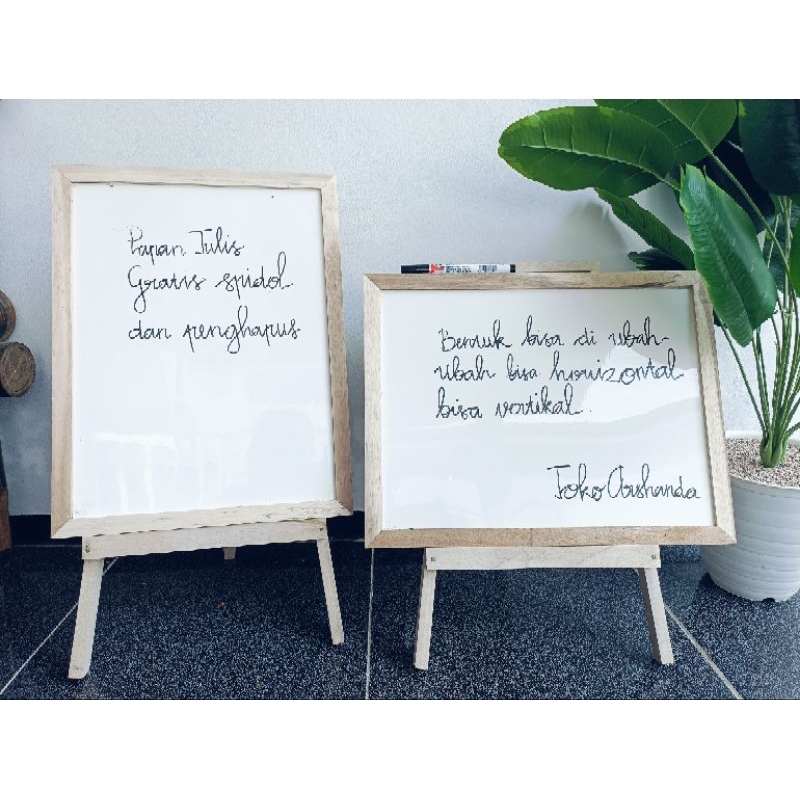 Papan Tulis
Gratis spidol
dan penghapus
Bentuk bisa di ubah-
ubah bisa horizontal
bisa vertikal.
Toko Arshanda